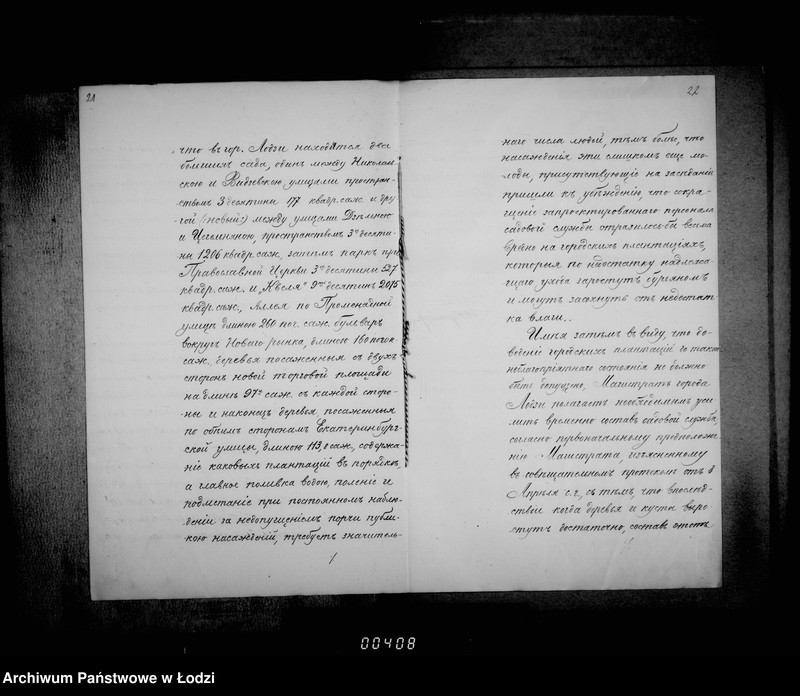 21
что въ гор. Лодзи находятся два
большихъ сада, одинъ между Николаев-
скою и Видзевскою улицами простран-
ствомъ 3 десятины 177 квадр. саж. и дру-
гой (новый) между улицами Дзѣльною
и Цегельняною, пространствомъ 3 десяти-
ны 1206 квадр. саж., затѣмъ паркъ при
Православной Церкви 3 десятины 527
квадр. саж. и „Квеля" 9 десятинъ 2015
квадр. саж., Аллея по Променадной
улицѣ длиною 260 пог. саж. бульваръ
вокругъ Новаго рынка, длиною 160 погон.
саж. деревья посаженныя съ двухъ
сторонъ новой торговой площади
на длинѣ 97 саж. съ каждой сторо-
ны и наконецъ деревья, посаженныя
по обѣимъ сторонамъ Екатеринбург-
ской улицы, длиною 113,0 саж., содержа-
ніе каковыхъ плантацій въ порядкѣ,
а главное поливка водою, поленіе и
подметаніе при постоянномъ наблю-
деніи за недопущеніемъ порчи публи-
кою насажденій, требуетъ значитель-
22
наго числа людей, тѣмъ болѣе, что
насажденія эти слишкомъ еще мо-
лоды, присутствующіе на засѣданіи
пришли къ убѣжденію, что сокра-
щеніе запроектированнаго персонала
садовой службы отразилось-бы весьма
вредно на городскихъ плантаціяхъ,
которыя по недостатку надлежа-
щаго ухода заростутъ бурьяномъ
и могутъ засохнуть отъ недостат-
ка влаги..
Имѣя затѣмъ въ виду, что до-
веденіе городскихъ плантацій до такого
неблагопріятнаго состоянія не должно
быть допущено, Магистратъ города
Лодзи полагаетъ необходимымъ уси-
лить временно составъ садовой службы,
согласно первоначальному предположе-
нію Магистрата, изъясненному
въ совѣщательномъ протоколѣ отъ 8
Апрѣля с. г., съ тѣмъ, что впослѣд-
ствіи когда деревья и кусты выро-
стутъ достаточно, составъ этотъ
00408
Archiwum Państwowe w Łodzi